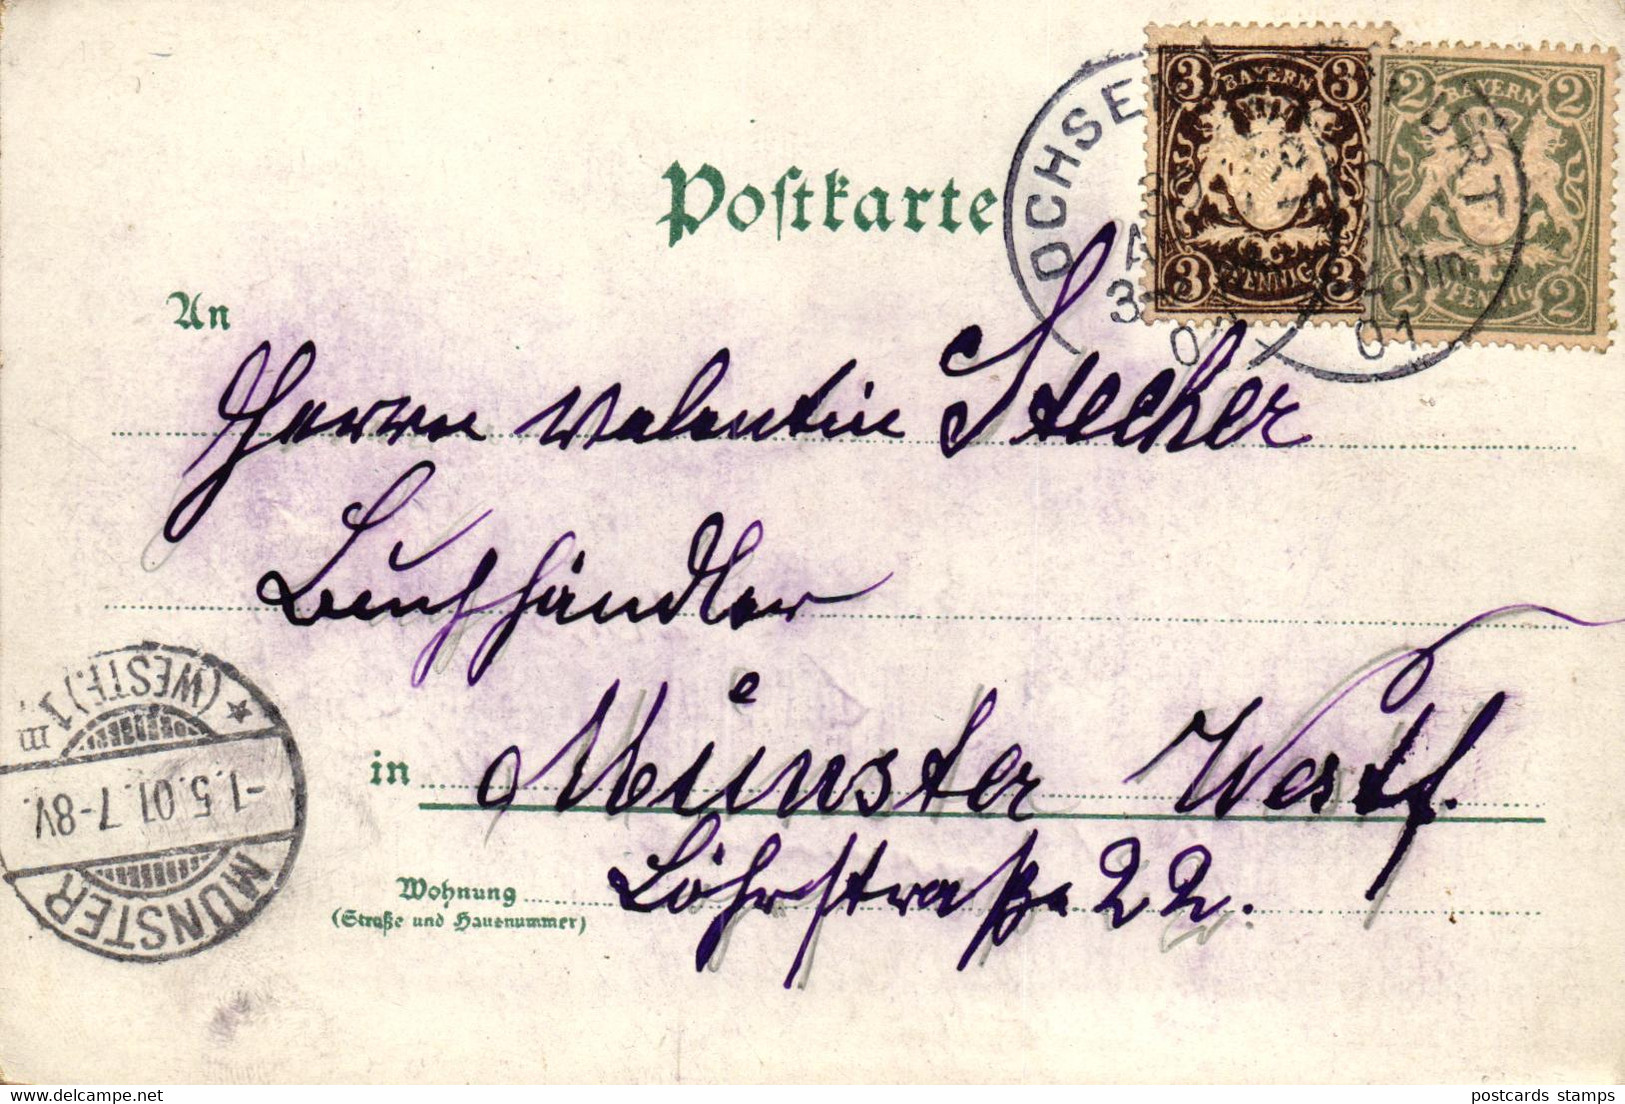 Postkarte
OCHSENFURT
30
3
Nm.
01
3 BAYERN 3
3 PFENNIG 3
2 BAYERN 2
2 PFENNIG 2
An
Herrn Valentin Stecher
Buchhändler
in Münster Westf.
Wohnung Löhrstraße 22.
(Straße und Hausnummer)
MÜNSTER
-1.5.01.7-8V.
* (WESTF.) 1 m
postcards stamps